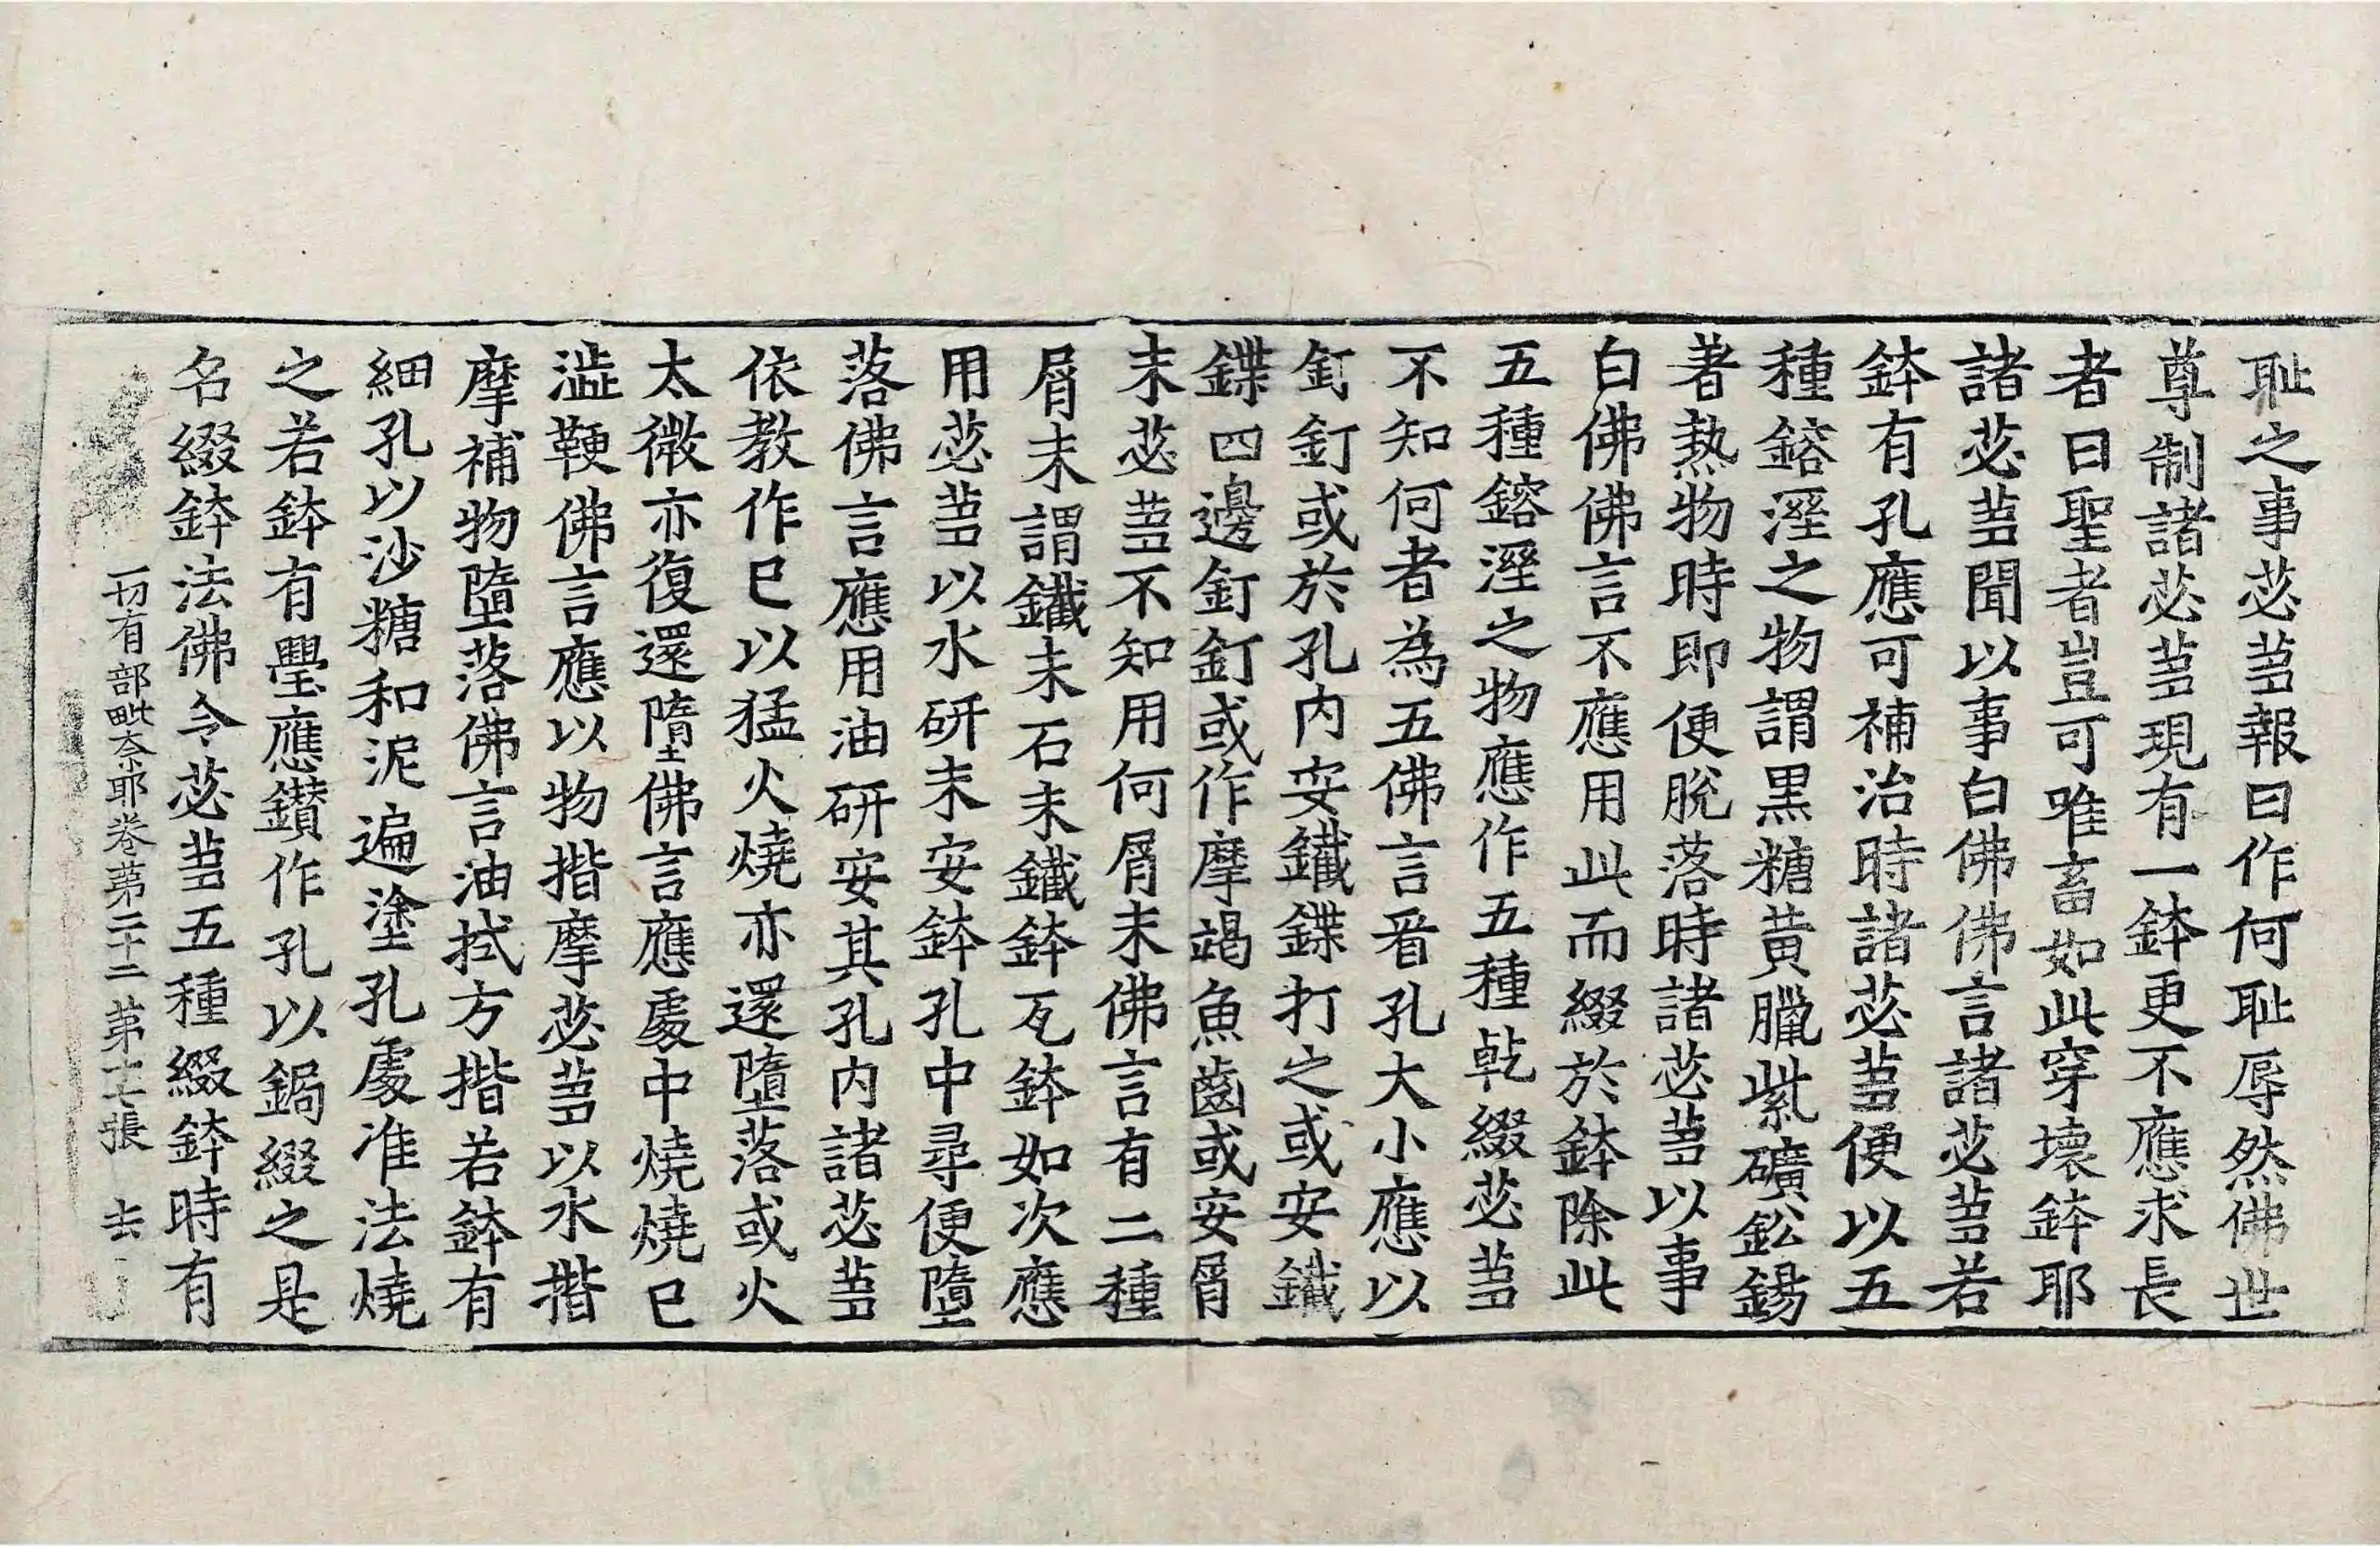 耻之事苾蒭報曰作何耻辱然佛世
尊制諸苾蒭現有一鉢更不應求長
者曰聖者豈可唯畜如此穿壞鉢耶
諸苾蒭聞以事白佛佛言諸苾蒭若
鉢有孔應可補治時諸苾蒭便以五
種鎔溼之物謂黒糖黄臈紫礦鈆錫
著熱物時即便脫落時諸苾蒭以事
白佛佛言不應用此而綴於鉢除此
五種鎔溼之物應作五種乹綴苾蒭
不知何者為五佛言㸔孔大小應以
釘釘或於孔内安鐵鍱打之或安鐵
鍱四邊釘釘或作摩竭魚齒或安屑
末苾蒭不知用何屑末佛言有二種
屑末謂鐵末石末鐵鉢瓦鉢如次應
用苾蒭以水研末安鉢孔中尋便墮
落佛言應用油研安其孔内諸苾蒭
依教作已以猛火燒亦還墮落或火
太微亦復還墮佛言應處中燒燒已
澁鞕佛言應以物揩摩苾蒭以水揩
摩補物墮落佛言油拭方揩若鉢有
細孔以沙糖和泥遍塗孔處准法燒
之若鉢有舋應鑚作孔以鍋綴之是
名綴鉢法佛令苾蒭五種綴鉢時有
一切有部毗奈耶卷第二十二 第十七張 去